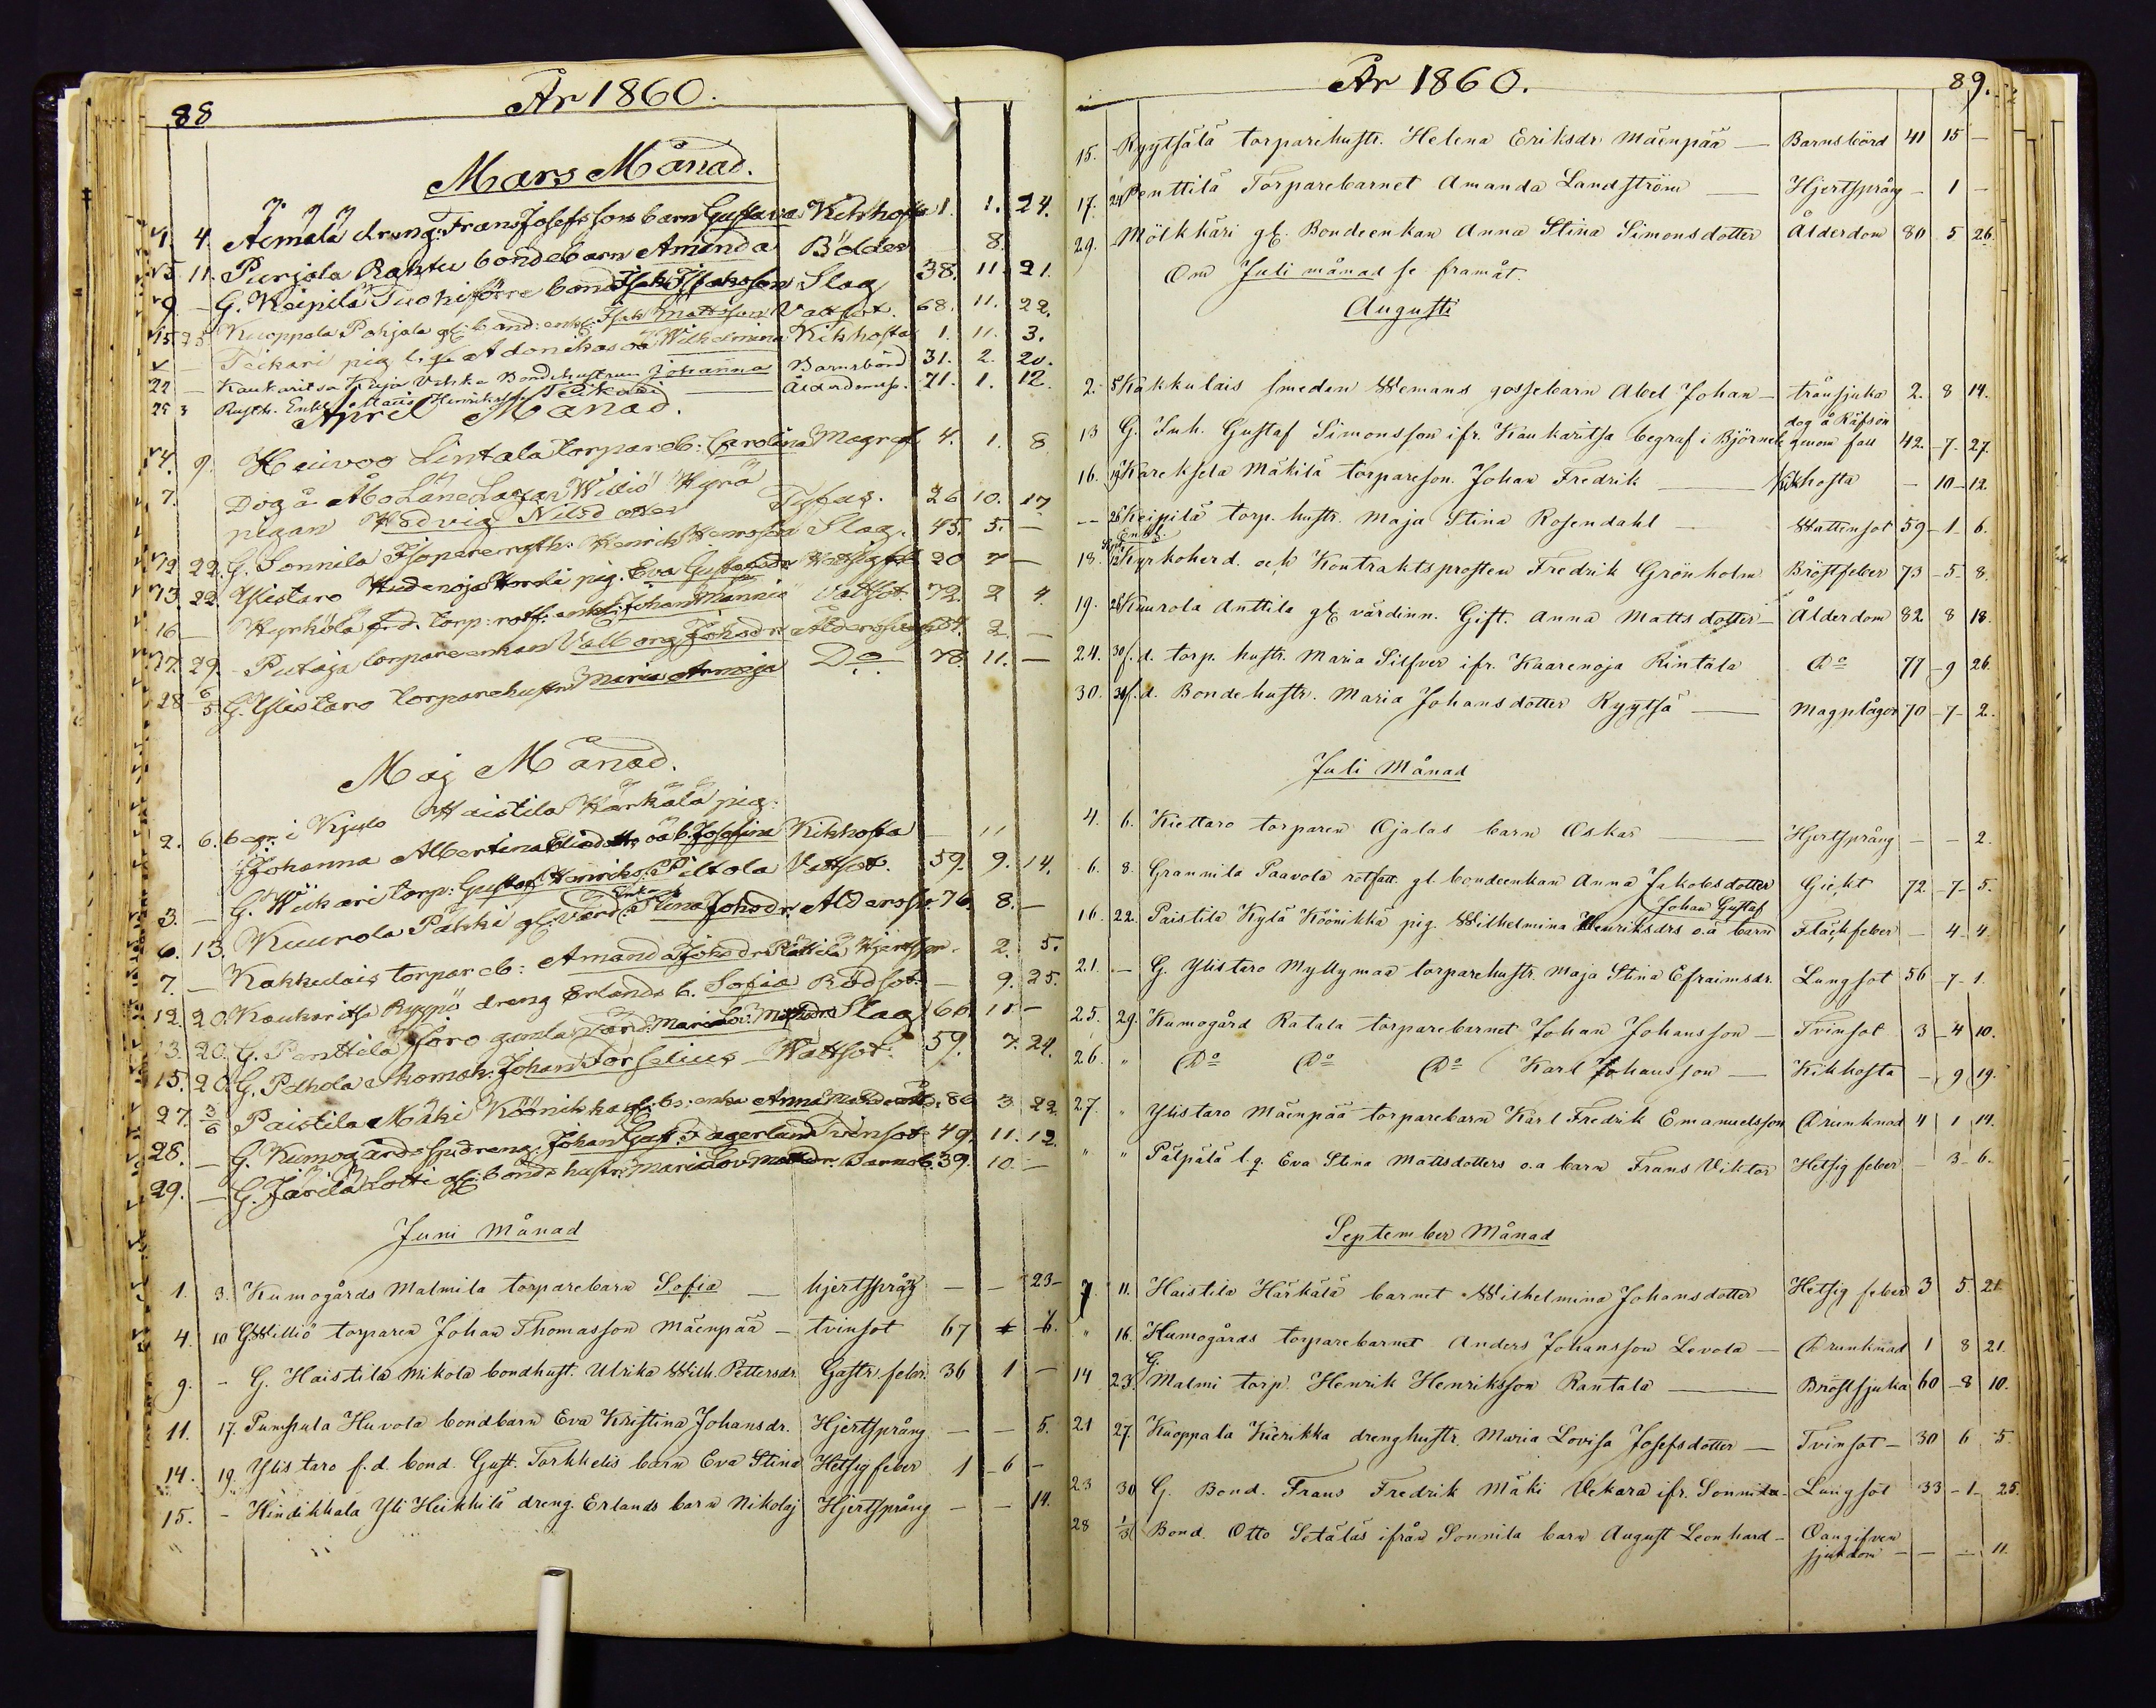 88
År 1860.
Mars Månad.
1. 4. Aemälä dreng: Frans Josefssons barn Gustava Kikhosta 1. 1. 24.
5. 11. Purjala Rantu bondebarn Amanda Bölder 8.
9. – G. Keipilä Tuoki förre bond Isak Isaksson Slag 38. 11. 21.
15. Kuoppala Pohjala gl: bond: enkl: Isak Mattsson Vattsot. 68. 11. 22.
– Teikari pig l. q. oä Wilhelmina Kikhosta 1. 11. 3.
22 – Kaukaritsa Vihka Bondehustrun Johanna Barnsbörd 31. 2. 20.
25 3 Rusth. Enkl. Matts Henriksson Teikari Ålderdoms. 71. 1. 12.
April Månad.
4. 9. Heinoo Lintala torpareb: Carolina Magref 4. 1. 8
7. Dog å Åbo Läns Willio Kyrö
pigan Hedvig Nilsdotter Tyfus. 26 10. 17
12 22. G. Sonnila Henrich Slag. 45. 5. –
13. 22. Ylistaro pig. Eva 20 7 –
16 – Kyrkölä f.d. torp: rotf. enkl: Johan Mannio Vattsot. 72. 2 4.
17. 29. – Putaja torpareenkan Valborg Johsdr 2. –
28 6/5. G. Ylistaro torparehustru Maria Do 78. 11. –
Maj Månad.
2. 6. begr. i Kjulo Haistila Härkälä pig.
Johanna Albertina oä b. Josefina Kikhosta – 11
3. – G. Wiikari torp: Gustaf Henriks. Piltola Vattsot. 59. 9. 14.
6. 13. Kuurola Pähki gl. värd. Enka Stina Johsdr. Åldersv. 76. 8. –
7. – Kakkulais torpareb: Amanda Johsdr Hjertspr. 2. 5.
12. 20. Kaukaritsa Ryypö dreng Erlands b. Sofia Rödsot. – 9. 25.
13. 20. G. Penttilä gamla Slag 66. 11 –
15. 20. G. Pelhola Skomak: Johan Forselius Wattsot. 59. 7. 24.
27. 3/6 Paistila Mäki Köönikkä Anna 86 3 22.
28. – G. Kumogårds Johan Gust. Fagerlund Tvinsot 49. 11. 12.
29. – G. Järilä Lotti gl: bonde hustr: Maria Lov. Barnsb. 39. 10. –
Juni Månad
1. 3. Kumogårds Malmila torparebarn Sofia – hjertspräng – – 23 –
4. 10 G Willio torparen Johan Thomasson Mäenpää – tvinsot 67
9. – G. Haistila Nikola bondhust. Ulrika Wilh. Pettersdr. Gastr. feber. 36 1 –
11. 17. Pumpula Huvola bondbarn Eva Kristina Johansdr. Hjertspräng – – 5.
14. 19. Ylistaro f.d. bond. Gust. Torkkelis barn Eva Stina Hetsig feber 1 – 6 –
15. – Hindikkala Yli Heikkilä dreng. Erlands barn Nikolaj Hjertspräng – – 14.
År 1860.
89.
15. Ryytsälä torparehustr. Helena Eriksdr. Mäenpää – Barnsbörd 41 15 –
17. 24 Penttilä Torparebarnet Amanda Landström – Hjertspräng – 1 –
29. Mölkkäri gl. Bondeenkan Anna Stina Simonsdotter Ålderdom 80 5 26.
Om Juli månad se framåt.
Augusti
2. 5 Kakkulais smeden Wemans gossebarn Abel Johan – trånsjuka 2. 8 14.
13 G. Inh. Gustaf Simonsson ifr. Kaukaritsa begraf i Björneb. dog å Räfsön genom fall 42. – 7. 27.
16. 19 Kareksela Mäkilä torpareson. Johan Fredrik – Kikhosta – 10 – 12.
– – 26 Keipilä torp. hustr. Maja Stina Rosendahl – Wattensot 59 – 1 – 6.
18. Kyrkoherd. och Kontraktsprosten Fredrik Grönholm Bröstfeber 73 – 5 – 8.
19. 26 Kuurola Anttila gl. värdinn. Gift. Anna Mattsdotter – Ålderdom 82 8 18.
24. 30 f.d. torp. hustr. Maria Silfver ifr. Kaarenoja Rintala Do 77 – 9 26.
30. f.d. Bondehustr. Maria Johansdotter Ryytsä – Magplågor 70 – 7 – 2.
Juli Månad
4. 6. Kiettaro torparen Ojalas barn Oskar – Hjertspräng – – 2.
6. 8. Grannila Paavola rotfatt. gl. bondeenkan Anna Jakobsdotter Gickt 72. – 7 – 5.
16. 22. Paistila Kylä Köönikkä pig. Wilhelmina Henriksdrs o.ä barn Johan Gustaf Fläckfeber – 4 – 4.
21. – G. Ylistaro Myllymaa torparehustr. Maja Stina Efraimsdr. Lungsot 56 – 7 – 1.
25. 29. Kumogård Ratala torparebarnet Johan Johansson – Tvinsot 3 – 4 10.
26. " Do Do Do Karl Johansson – Kikhosta – 9 19.
27. " Ylistaro Mäenpää torparebarn Karl Fredrik Emanuelsson Drunknad 4 1 14.
" " Pälpälä l.q. Eva Stina Mattsdotters o.ä barn Frans Viktor Hetsig feber – 3 – 6.
September Månad
7. 11. Haistila Härkälä barnet Wilhelmina Johansdotter Hetsig feber 3 5. 21.
" 16. Kumogårds torparebarnet Anders Johansson Levola – Drunknad 1 8 21.
14 23. G. Malmi torp. Henrik Henriksson Rantala – Bröstsjuka 60 – 8 10.
21 27. Kuoppala Kierikka drenghustr. Maria Lovisa Josefsdotter – Tvinsot – 30 6 5.
23 30 G. Bond. Frans Fredrik Mäki Uckara ifr. Sonnila – Lungsot 33 – 1 – 25.
28 1/3 Bond. Otto Setäläs ifrån Sonnila barn August Leonhard – Oangifven
sjukdom – – – 11.